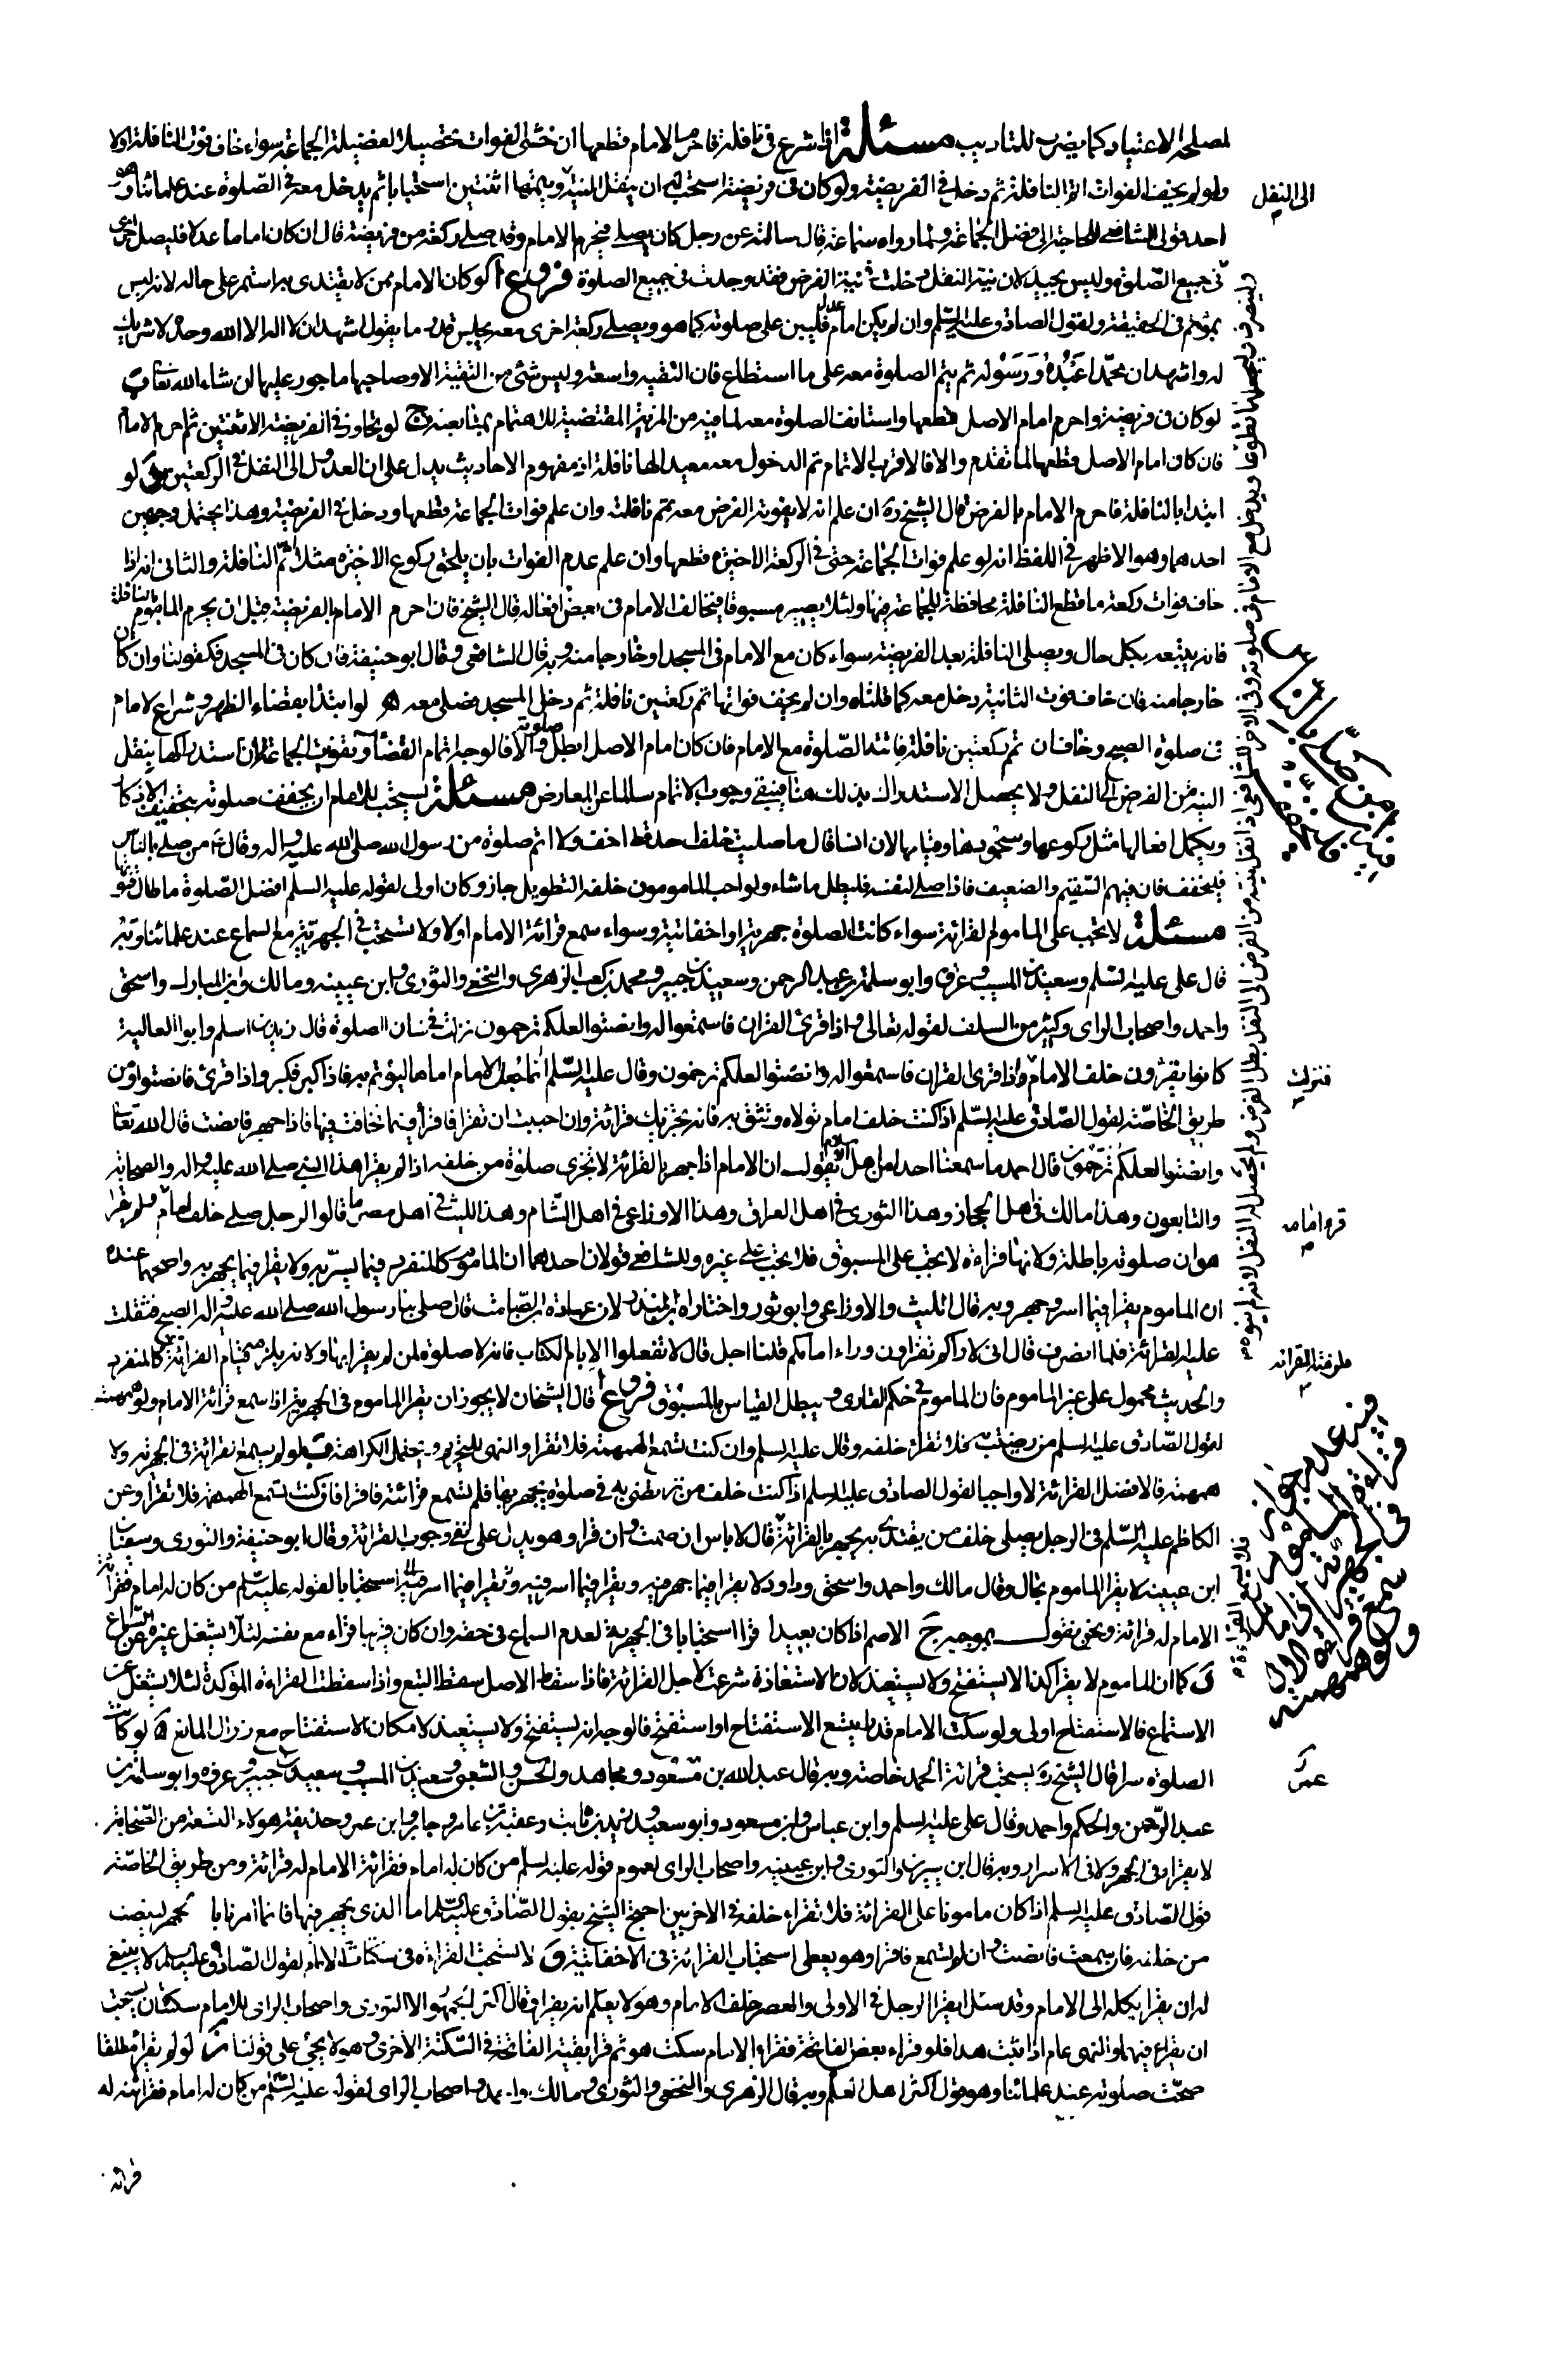 لمصلحة الاعتياد كما يضرب للتاديب مسئلة اذا شرع في نافلة فاحرم الامام قطعها ان خشي الفوات تحصيلا لفضيلة الجماعة سواء خاف فوت النافلة اولا
ولو لم يخف الفوات اتم النافلة ثم دخل في الفريضة ولو كان في فريضة استحب له ان ينقل النية ويتمها اثنتين استحبابا ثم يدخل معه في الصلوة عند علمائنا وهو
احد قولي الشافعي للحاجة الى فضل الجماعة ولما رواه سماعة قال سالته عن رجل كان يصلي فخرج الامام وقد صلى ركعة من فريضة قال ان كان اماما عدلا فليصل اخرى
في جميع الصلوة وليس بجيد لان نية النفل دخلت في نية الفرض فقد وجدت في جميع الصلوة فروع آ لو كان الامام ممن لا يقتدى به استمر على حاله لانه ليس
بمؤتم في الحقيقة ولقول الصادق عليه السلم وان لم يكن امام عدل فليبن على صلوته كما هو ويصلي ركعة اخرى معه يجلس قدر ما يقول اشهد ان لا اله الا الله وحده لا شريك
له واشهد ان محمدا عبده ورسوله ثم يتم الصلوة معه على ما استطاع فان التقية واسعة وليس شئ من التقية الا وصاحبها ماجور عليها ان شاء الله تعالى ب
لو كان في فريضة واحرم امام الاصل قطعها واستانف الصلوة معه لما فيه من المزية المقتضية للاهتمام بمتابعته ج لو تجاوز في الفريضة الاثنتين ثم احرم الامام
فان كان امام الاصل قطعها لما تقدم والا فالاقرب الاتمام ثم الدخول معه معيدا لها نافلة اذ مفهوم الاحاديث يدل على ان العدول الى النفل في الركعتين د لو
ابتدا بالنافلة فاحرم الامام بالفرض قال الشيخ ره ان علم انه لا يفوته الفرض معه تمم نافلته وان علم فوات الجماعة قطعها ودخل في الفريضة وهذا يحتمل وجهين
احدهما وهو الاظهر في اللفظ انه لو علم فوات الجماعة حتى في الركعة الاخيرة قطعها وان علم عدم الفوات بان يلتحق ركوع الاخيرة مثلا تمم النافلة والثاني انه اذا
خاف فوات ركعة ما قطع النافلة محافظة للجماعة فيها ولئلا يصير مسبوقا فيخالف الامام في بعض افعاله قال الشيخ فان احرم الامام بالفريضة قبل ان يحرم الماموم بالنافلة
فانه يتبعه بكل حال ويصلي النافلة بعد الفريضة سواء كان مع الامام في المسجد او خارجا منه وبه قال الشافعي وقال ابو حنيفة فان كان في المسجد فكقولنا وان كان
خارجا منه فان خاف فوت الثانية دخل معه كما قلناه وان لم يخف فواتها تمم ركعتين نافلة ثم دخل المسجد فصلى معه ه لو ابتدا بقضاء الظهر وشرع الامام
في صلوة الصبح وخاف ان تمم ركعتين نافلة فاتته الصلوة مع الامام فان كان امام الاصل ابطل صلوته والا فالوجه اتمام القضاء وتفويت الجماعة لان استدراكها بنقل
النية من الفرض الى النفل ولا يحصل الاستدراك بذلك هنا فيبقى وجوب الاتمام سالما عن المعارض مسئلة يستحب للامام ان يخفف صلوته بتخفيف الاذكار
ويكمل افعالها مثل ركوعها وسجودها وقيامها لان انسا قال ما صليت خلف احد قط اخف ولا اتم صلوة من رسول الله صلى الله عليه واله وقال ع من صلى بالناس
فليخفف فان فيهم السقيم والضعيف فاذا صلى لنفسه فليطل ما شاء ولو احب المامومون خلفه التطويل جاز وكان اولى لقوله عليه السلم افضل الصلوة ما طال قنوتها
مسئلة لا تجب على الماموم القرائة سواء كانت الصلوة جهرية او اخفاتية وسواء سمع قرائة الامام اولا ولا تستحب في الجهرية مع السماع عند علمائنا وبه
قال علي عليه السلم وسعيد بن المسيب وعروة وابو سلمة بن عبد الرحمن وسعيد بن جبير ومحمد بن كعب والزهري والنخعي والثوري وابن عيينه ومالك وابن المبارك واسحق
واحمد واصحاب الراي وكثير من السلف لقوله تعالى واذا قرئ القران فاستمعوا له وانصتوا لعلكم ترحمون نزلت في شان الصلوة قال زيد بن اسلم وابو العالية
كانوا يقرؤن خلف الامام واذا قرئ القران فاستمعوا له وانصتوا لعلكم ترحمون وقال عليه السلم انما جعل الامام اماما ليؤتم به فاذا كبر فكبروا واذا قرئ فانصتوا ومن
طريق الخاصة لقول الصادق عليه السلم اذا كنت خلف امام تولاه وتثق به فانه يجزيك قرائته وان احببت ان تقرا فاقرا فيما خافت فيها فاذا جهر فانصت قال الله تعالى
وانصتوا لعلكم ترحمون قال احمد ما سمعنا احدا من اهل الاسلام يقول ان الامام اذا جهر بالقرائة لا تجزي صلوة من خلفه اذا لم يقرا هذا النبي صلى الله عليه واله والصحابة
والتابعون وهذا مالك في اهل الحجاز وهذا الثوري في اهل العراق وهذا الاوزاعي في اهل الشام وهذا الليث في اهل مصر ما قالوا الرجل صلى خلف امام فلم يقرا
هو ان صلوته باطلة ولانها قراءة لا تجب على المسبوق فلا تجب على غيره وللشافعي قولان احدهما ان الماموم كالمنفرد فيما يسر به ولا يقرا فيما يجهر به واصحهما عنده
ان الماموم يقرا فيما اسر وجهر وبه قال الليث والاوزاعي وابو ثور واختاره ابن المنذر لان عبادة بن الصامت قال صلى بنا رسول الله صلى الله عليه واله الصبح فثقلت
عليه القرائة فلما انصرف قال اني لاراكم تقراون وراء امامكم قلنا اجل قال لا تفعلوا الا بام الكتاب فانه لا صلوة لمن لم يقرا بها ولانه يلزمه قيام القرائة كالمنفرد
والحديث محمول على غير الماموم فان الماموم في حكم القارئ ويبطل القياس بالمسبوق فروع آ قال الشيخان لا يجوز ان يقرا الماموم في الجهرية اذا سمع قرائة الامام ولو همهمة
لقول الصادق عليه السلم من رضيت به فلا تقرا خلفه وقال عليه السلم وان كنت تسمع الهمهمة فلا تقرا والنهي للتحريم ويحتمل الكراهة ب لو لم يسمع قرائة في الجهرية ولا
همهمة فالافضل القرائة لا واجبا لقول الصادق عليه السلم اذا كنت خلف من ترتضي به في صلوة يجهر فيها فلم تسمع قرائته فاقرا فان كنت تسمع الهمهمة فلا تقرا وعن
الكاظم عليه السلم في الرجل يصلي خلف من يقتدى به يجهر بالقرائة قال لا باس ان صمت وان قرا وهو يدل على نفي وجوب القرائة وقال ابو حنيفة والثوري وسفيان
ابن عيينه لا يقرا الماموم بحال وقال مالك واحمد واسحق وداود لا يقرا فيما جهر فيه ويقرا فيما اسر فيه استحبابا لقوله عليه السلم من كان له امام فقرائة
الامام له قرائة ونحن نقول بموجبه ج الاصم اذا كان بعيدا قرا استحبابا في الجهرية لعدم السماع في حقه وان كان قريبا قراء مع نفسه لئلا يشغل غيره عن السماع
د كما ان الماموم لا يقرا كذا لا يستفتح ولا يستعيذ لان الاستعاذة شرعت لاجل القرائة فاذا سقط الاصل سقط التبع واذا سقطت القراءة المؤكدة لئلا يشتغل عن
الاستماع فالاستفتاح اولى ولو سكت الامام قدرا يتسع الاستفتاح او استفتح فالوجه انه يستفتح ولا يستعيذ لامكان الاستفتاح مع زوال المانع ه لو كانت
الصلوة سرا قال الشيخ ره يستحب قرائة الحمد خاصة وبه قال عبد الله بن مسعود ومجاهد والحسن والشعبي وسعيد بن المسيب وسعيد بن جبير وعروه وابو سلمة بن
عبد الرحمن والحكم واحمد وقال علي عليه السلم وابن عباس وابن مسعود وابو سعيد وزيد بن ثابت وعقبة بن عامر وجابر وابن عمر وحذيفة هؤلاء التسعة من الصحابة
لا يقرا في الجهر ولا في الاسرار وبه قال ابن سيرين والثوري وابن عيينه واصحاب الراي لعموم قوله عليه السلم من كان له امام فقرائة الامام له قرائة ومن طريق الخاصة
قول الصادق عليه السلم اذا كان مامونا على القرائة فلا تقراء خلفه في الاخريين احتج الشيخ بقول الصادق عليه السلم اما الذي يجهر فيها فانما امرنا بالجهر لينصت
من خلفه فان سمعت فانصت وان لم تسمع فاقرا وهو يعطي استحباب القرائة في الاخفاتية و لا تستحب القراءة في سكتات الامام لقول الصادق عليه السلم لا ينبغي
له ان يقرا يكله الى الامام وقد سئل ايقرا الرجل في الاولى والعصر خلف الامام وهو لا يعلم انه يقرا وقال اكثر الجمهور الا الثوري واصحاب الراي للامام سكتتان يستحب
ان يقراء فيهما والنهي عام اذا ثبت هذا فلو قراء بعض الفاتحة فقراء الامام سكت هو ثم قرا بقية الفاتحة في السكتة الاخرى وهو لا يجئ على قولنا ز لو لم يقرا مطلقا
صحت صلوته عند علمائنا وهو قول اكثر اهل العلم وبه قال الزهري والنخعي والثوري ومالك واحمد واصحاب الراي لقوله عليه السلم من كان له امام فقرائته له
قرائة
الى النفل
فنزلت
قراء امامه
فيه عدم جواز
قراءة الماموم
في الجهرية اذا
سمع قراءة الامام
ولو همهمة